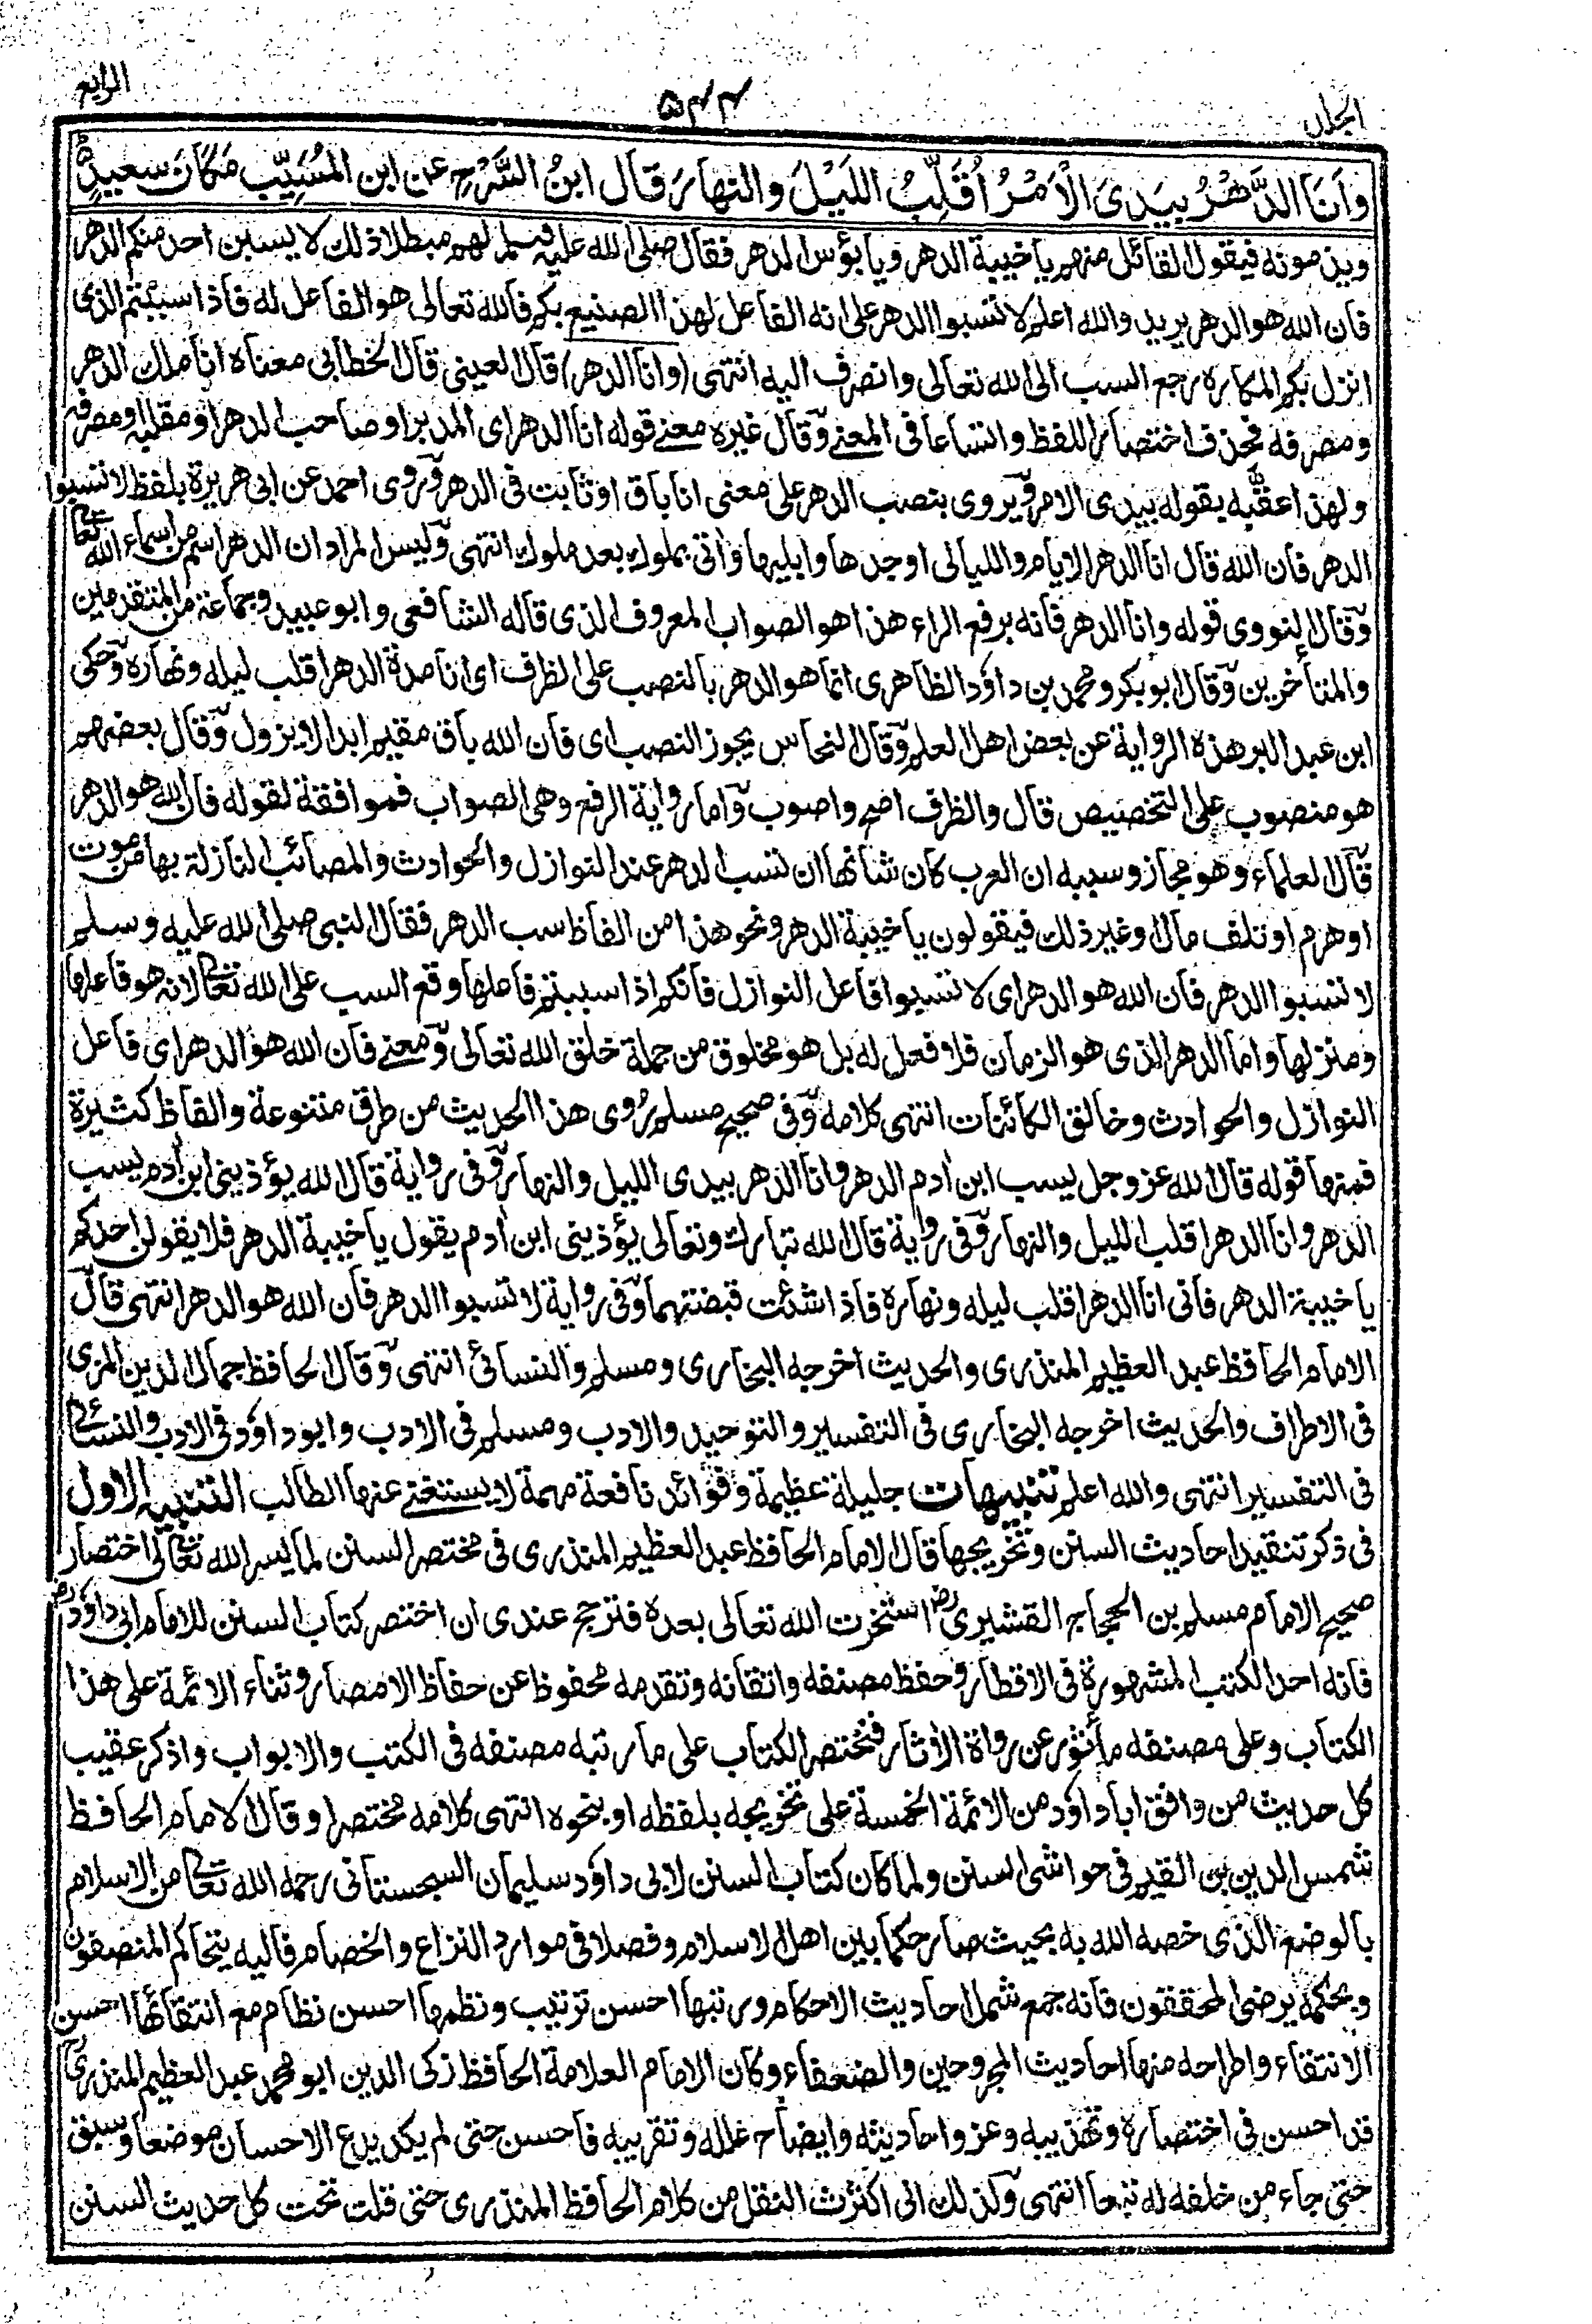 الجلد
۵۴۴
الرابع
وَاَنَا الدَّهْرُ بِيَدِىَ الْاَمْرُ اُقَلِّبُ اللَيْلَ والنهارَ قَال ابنُ السَّرْحِ عن ابن المُسَيِّب مَكَانَ سعيدٍ
ويذمونه فيقول القائل منهم ياخيبة الدهر ويا بؤس الدهر فقال صلى الله عليه وسلم لهم مبطلا ذلك لا يسبن احد منكم الدهر
فان الله هو الدهر يريد والله اعلم لا تسبوا الدهر على انه الفاعل لهذا الصنيع بكم فالله تعالى هو الفاعل له فاذا سببتم الذى
انزل بكم المكاره رجع السب الى الله تعالى وانصرف اليه انتهى (وانا الدهر) قال العينى قال الخطابى معناه انا ملك الدهر
ومصرفه فحذف اختصارا للفظ واتساعا فى المعنے وقال غيره معنے قوله انا الدهر اى المدبر او صاحب الدهر او مقلبه او مصرفه
ولهذا عقبه بقوله بيدى الامر ويروى بنصب الدهر على معنى انا باق او ثابت فى الدهر وروى احمد عن ابى هريرة بلفظ لا تسبوا
الدهر فان الله قال انا الدهر الايام والليالى اوجدها وابليها واتى بملوك بعد ملوك انتهى وليس المراد ان الدهر اسم من اسماء الله تعا
وقال النووى قوله وانا الدهر فانه برفع الراء هذا هو الصواب المعروف الذى قاله الشافعى وابو عبيد وجماعة من المتقدمين
والمتأخرين وقال ابو بكر ومحمد بن داؤد الظاهرى انما هو الدهر بالنصب على الظرف اى انا مدة الدهر اقلب ليله ونهاره وحكى
ابن عبد البر هذه الرواية عن بعض اهل العلم وقال النحاس يجوز النصب اى فان الله باق مقيم ابدا لا يزول وقال بعضهم
هو منصوب على التخصيص قال والظرف اصح واصوب واما رواية الرفع وهى الصواب فموافقة لقوله فان الله هو الدهر
قال العلماء وهو مجاز وسببه ان العرب كان شأنها ان تسب الدهر عند النوازل والحوادث والمصائب النازلة بها من موت
او هرم او تلف مال او غير ذلك فيقولون ياخيبة الدهر ونحو هذا من الفاظ سب الدهر فقال النبى صلى الله عليه وسلم
لا تسبوا الدهر فان الله هو الدهر اى لا تسبوا فاعل النوازل فانكم اذا سببتم فاعلها وقع السب على الله تعالى لانه هو فاعلها
ومنزلها واما الدهر الذى هو الزمان فلا فعل له بل هو مخلوق من جملة خلق الله تعالى ومعنے فان الله هو الدهر اى فاعل
النوازل والحوادث وخالق الكائنات انتهى كلامه وفى صحيح مسلم رُوى هذا الحديث من طرق متنوعة والفاظ كثيرة
فمنها قوله قال الله عز وجل يسب ابن أدم الدهر وانا الدهر بيدى الليل والنهار وفى رواية قال الله يؤذينى ابن أدم يسب
الدهر وانا الدهر اقلب الليل والنهار وفى رواية قال الله تبارك وتعالى يؤذينى ابن أدم يقول ياخيبة الدهر فلا يقولن احدكم
ياخيبة الدهر فانى انا الدهر اقلب ليله ونهاره فاذا شئت قبضتهما وفى رواية لا تسبوا الدهر فان الله هو الدهر انتهى قال
الامام الحافظ عبد العظيم المنذرى والحديث اخرجه البخارى ومسلم والنسائى انتهى وقال الحافظ جمال الدين المزى
فى الاطراف والحديث اخرجه البخارى فى التفسير والتوحيد والادب ومسلم فى الادب وابوداؤد فى الادب والنسائے
فى التفسير انتهى والله اعلم تنبيهات جليلة عظيمة وفوائد نافعة مهمة لا يستغنے عنها الطالب التنبيه الاول
فى ذكر تنقيد احاديث السنن وتخريجها قال الامام الحافظ عبد العظيم المنذرى فى مختصر السنن لما يسر الله تعالى اختصار
صحيح الامام مسلم بن الحجاج القشيرى رض استخرت الله تعالى بعده فترجح عندى ان اختصر كتاب السنن للامام ابى داؤد رض
فانه احد الكتب المشهورة فى الاقطار وحفظ مصنفه واتقانه وتقدمه محفوظ عن حفاظ الامصار وثناء الائمة على هذا
الكتاب وعلى مصنفه مأثور عن رواة الأثار فنختصر الكتاب على ما رتبه مصنفه فى الكتب والابواب واذكر عقيب
كل حديث من وافق اباداؤد من الائمة الخمسة على تخريجه بلفظه او بنحوه انتهى كلامه مختصرا وقال الامام الحافظ
شمس الدين بن القيم فى حواشى السنن ولما كان كتاب السنن لابى داؤد سليمان السجستانى رحمه الله تعالى من الاسلام
بالوضع الذى خصه الله به بحيث صار حكما بين اهل الاسلام وفصلا فى موارد النزاع والخصام فاليه يتحاكم المنصفون
وبحكمه يرضى المحققون فانه جمع شمل احاديث الاحكام ورتبها احسن ترتيب ونظمها احسن نظام مع انتقائها احسن
الانتقاء واطراحه منها احاديث المجروحين والضعفاء وكان الامام العلامة الحافظ زكى الدين ابو محمد عبد العظيم المنذرى
قد احسن فى اختصاره وتهذيبه وعزو احاديثه وايضاح علله وتقريبه فاحسن حتى لم يكد يدع الاحسان موضعا وسبق
حتى جاء من خلفه له تبعا انتهى ولذلك انى اكثرت النقل من كلام الحافظ المنذرى حتى قلت تحت كل حديث السنن